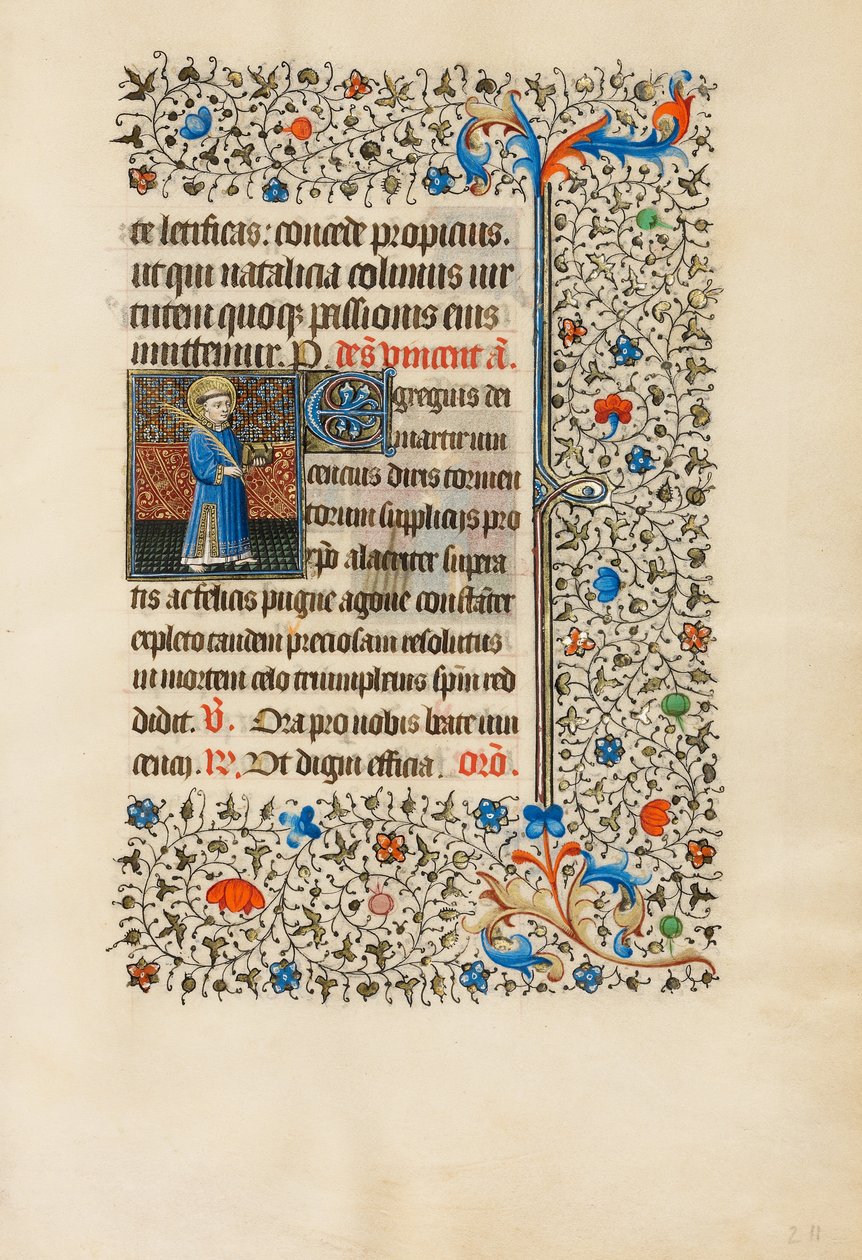 te letificas: concede propicius.
ut qui natalicia colimus vir
tutem quoq̨ passionis eius
imittemur. P de s̃ vincent a͂.
Egregius dei
martir vin
cencius diris tormen
torum supplicijs pro
xp̃o alacriter supera
tis ac felicis pugne agone constãter
expleto tandem preciosam resolutus
in mortem celo triumphans sp̃m red
didit. Ṽ. Ora pro nobis beate vin
cencij. R̃. Vt digni efficia. Orõ.
211